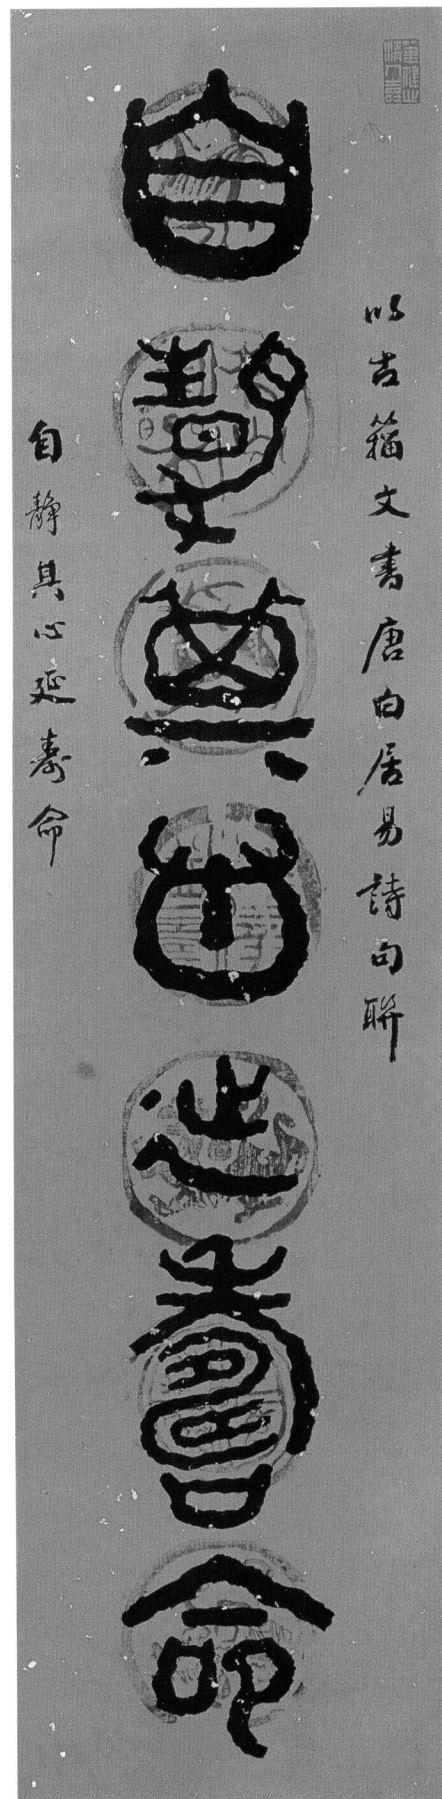 以古籀文書唐白居易詩句聯
自靜其心延壽命
自靜其心延壽命